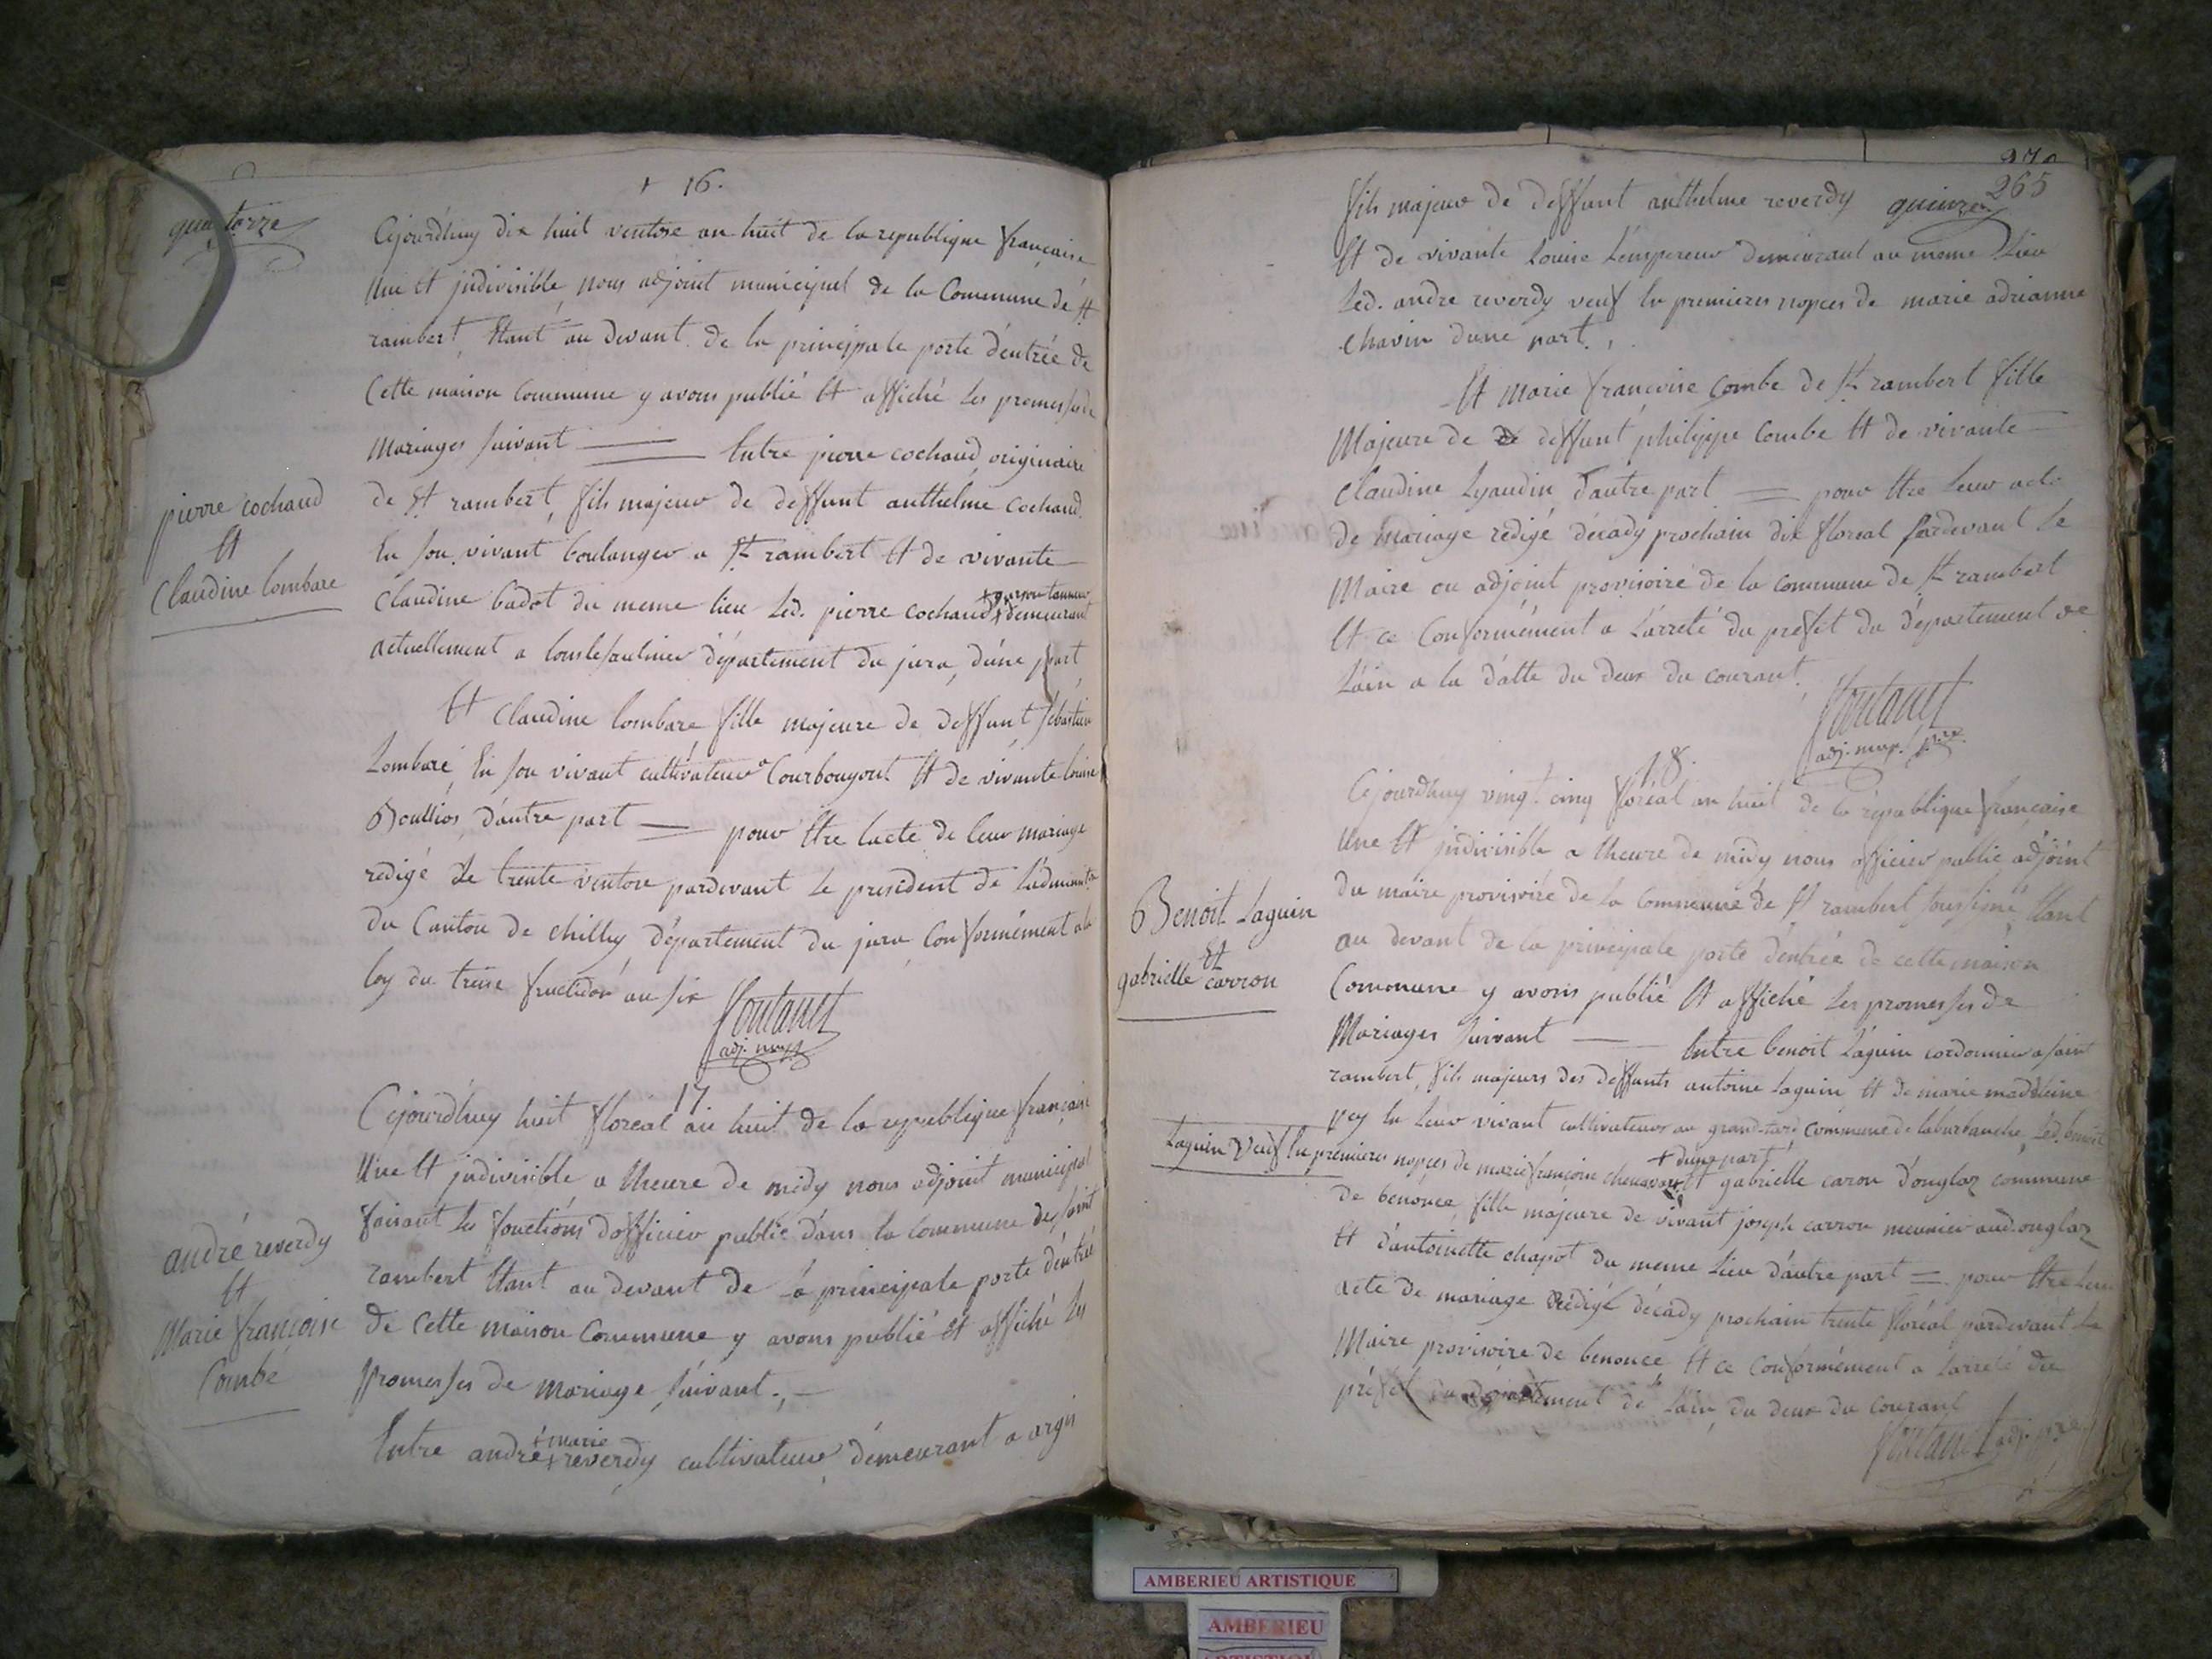 quatorze
16.
Cejourdhuy dix huit ventose an huit de la republique française
Une Et indivisible, nous adjoint municipal de la Commune de St
rambert, Etant au devant de la principale porte d'entrée de
Cette maison Commune y avons publié Et affiché les promesses de
Mariages suivant ——— Entre pierre cochaud originaire
de St rambert, fils majeur de deffunt anthelme cochaud
En son vivant boulanger a St rambert Et de vivante
Claudine badot du meme lieu Led. pierre cochaud + demeurant
+ garson tanneur
actuellement a lonslesaulnier département du jura, d'une part,
pierre cochaud
Et
Claudine lombare
Et Claudine lombare fille majeure de deffunt sébastien
Lombare, En son vivant cultivateur a Courbouzout Et de vivante louise
Boullios, d'autre part — pour Etre lacte de leur mariage
redigé Le trente ventose pardevant le president de l'administ.on
du Canton de chilly, département du jura Conformément a la
loy du treise fructidor an six
Montanet
adj. mup.
17
Cejourdhuy huit floreal an huit de la republique française
Une Et jndivisible a lheure de midy nous adjoint municipal
faisant les fonctions d'officier public dans la Commune de saint
rambert Etant au devant de la principale porte d'entrée
de Cette maison Commune y avons publié Et affiché les
promesses de mariage suivant. —
andré reverdy
Et
Marie françoise
Combe
Entre andré + reverdy cultivateur demeurant a argis
+ marie
270
265
quinze
fils majeur de deffunt anthelme reverdy
Et de vivante Louise Lempereur demeurant au meme Lieu
Led. andre reverdy veuf En premieres nopces de marie adrianne
chavin dune part.
Et Marie françoise Combe de St rambert fille
Majeure de deffunt philippe Combe Et de vivante
Claudine Lyaudin, d'autre part — pour Etre Leur acte
de mariage redigé décady prochain dix floreal pardevant Le
Maire ou adjoint provisoire de la commune de St rambert
Et ce Conformément a L'arreté du prefet du département de
L'ain a la datte du deux du courant.
Montanet
adj. mup. pre.
18
Cejourdhuy vingt cinq floreal an huit de la république française
Une Et jndivisible a lheure de midy nous officier public adjoint
du maire provisoire de la commune de St rambert soussigné, Etant
au devant de la principale porte d'entrée de cette maison
Commune y avons publié Et affiché Les promesses de
Mariages suivant — Entre benoit Laguin cordonnier a saint
Benoit Laguin
Et
gabrielle carron
rambert, fils majeurs des deffunts antoine Laguin Et de marie madeleine
pey En Leur vivant cultivateurs au grand commune de laburbanche, Led. benoit
Laguin Veuf En premieres nopces de marie françoise + Et gabrielle caron d'onglaz commune
+ d'une part
de benonce, fille majeure de vivant joseph carron meunier aud. onglaz
Et d'antoinette chapot du meme Lieu d'autre part = pour Etre Leur
acte de mariage Rédigé décady prochain trente floréal pardevant le
Maire provisoire de benonce, Et ce Conformément a L'arreté du
préfet du département de L'ain, du deux du courant
Montanet adj. pre
AMBERIEU ARTISTIQUE
AMBERIEU
ARTISTIQUE